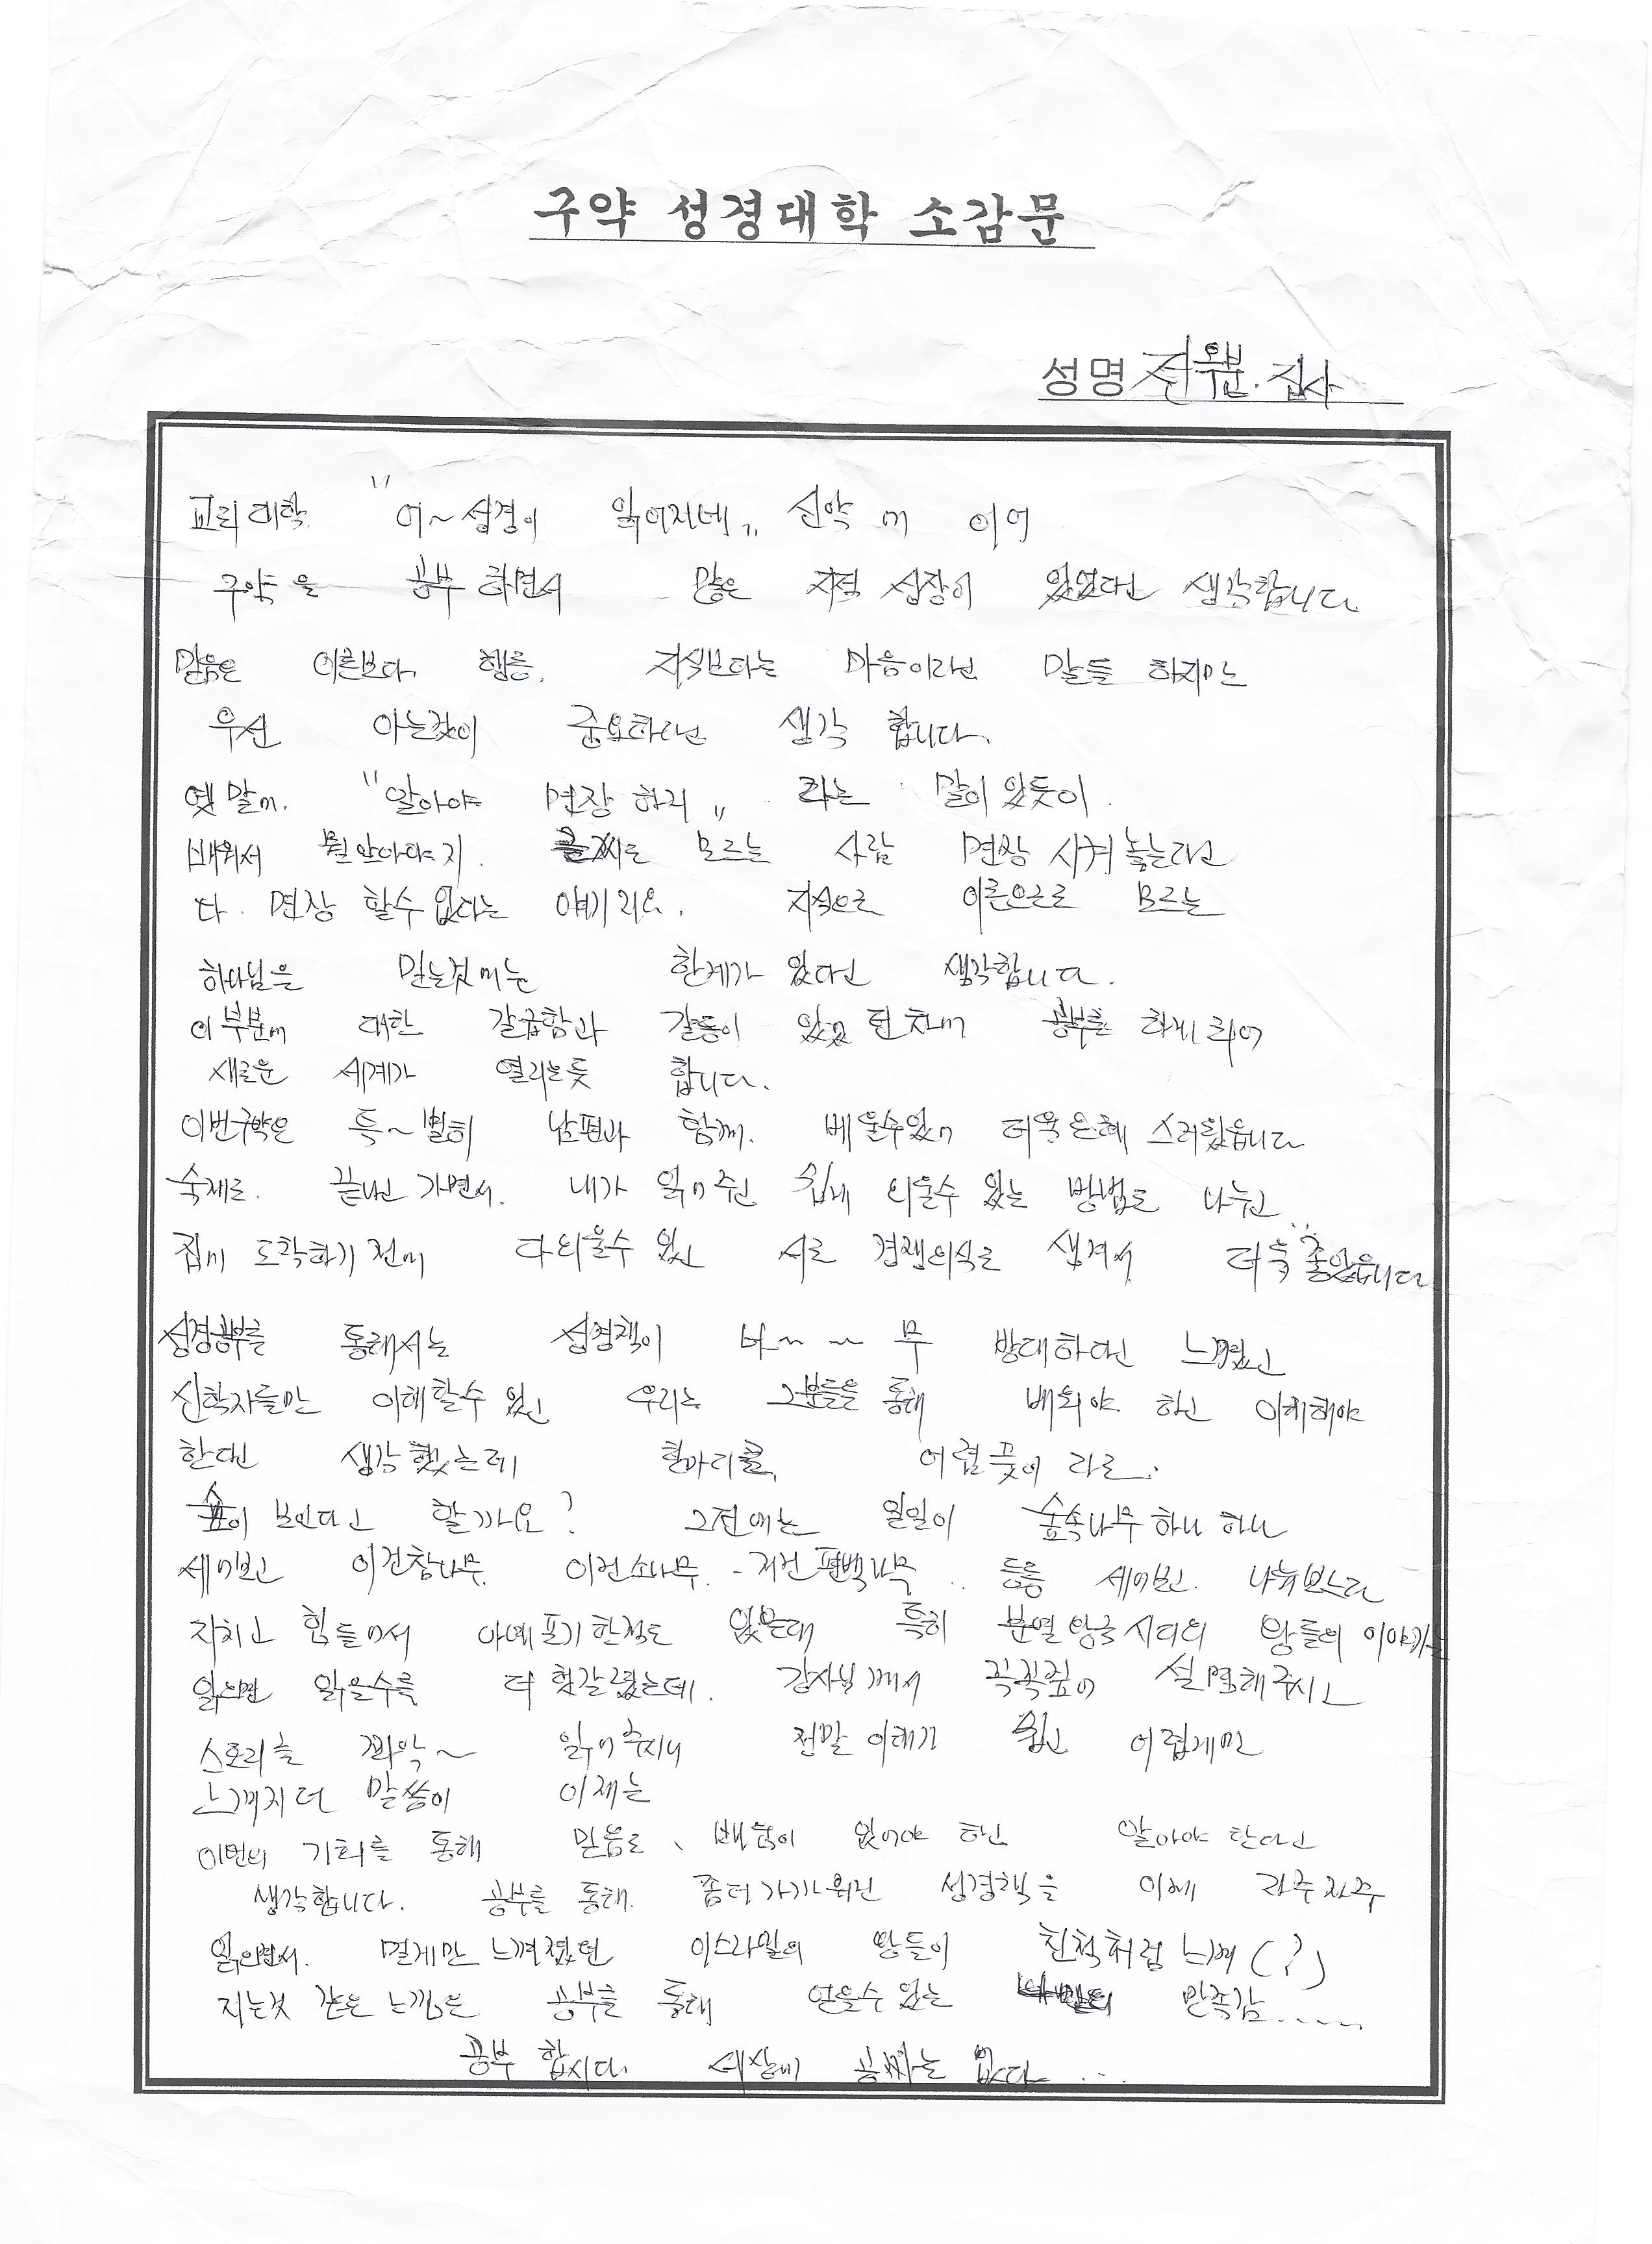 구약 성경대학 소감문
성명 전옥분. 집사
교리대학 "어~성경이 읽어지네" 신약에 이어
구약을 공부하면서 많은 지적 성장이 있었다고 생각합니다.
믿음은 이론보다 행동. 지식보다는 마음이라고 말들 하지만
우선 아는것이 중요하다고 생각 합니다.
옛말에. "알아야 면장 하지" 라는 말이 있듯이.
배워서 뭘알아야지. 모르는 사람 면장 시켜 놓는다고
다. 면장 할수 없다는 얘기지요. 지식으로 이론으로 모르는
하나님을 믿는것에는 한계가 있다고 생각합니다.
이 부분에 대한 갈급함과 갈등이 있었던 차에 공부를 하게 되어
새로운 세계가 열리는듯 합니다.
이번구약은 특~별히 남편과 함께. 배울수있어 더욱 은혜 스러웠읍니다
숙제로. 끝나고 가면서. 내가 읽어주고 쉽게 외울수 있는 방법도 나누고
집에 도착하기 전에 다외울수 있고 서로 경쟁의식도 생겨서 더욱 좋았읍니다
성경공부를 통해서는 성경책이 너~~~무 방대하다고 느꼈고
신학자들만 이해할수 있고 우리는 그분들을 통해 배워야 하고 이해해야
한다고 생각했는데 한마리로, 어렴풋이 라도.
숲이 보인다고 할까요? 그전에는 일일이 숲속나무 하나 하나
세어보고 이건참나무. 이건소나무. - 저건 편백나무.. 등등 세어보고. 나눠보느라
지치고 힘들어서 아예포기한적도 있었는데 특히 분열왕국 시대의 왕들의 이야기는
읽으면 읽을수록 더 헷갈렸는데. 강사님께서 꼭꼭짚어 설명해주시고
스토리를 쫘악~ 읽어주시니 정말 이해가 쉽고 어렵게만
느껴지던 말씀이 이제는
이번의 기회를 통해 믿음도, 배움이 있어야 하고 알아야 한다고
생각합니다. 공부를 통해. 좀더 가까워진 성경책을 이제 자주자주
읽으면서. 멀게만 느껴졌던 이스라엘의 왕들이 친척처럼 느껴(?)
지는것 같은 느낌은 공부를 통해 얻을수 있는 만족감......
공부 합시다. 세상에 공짜는 없다...